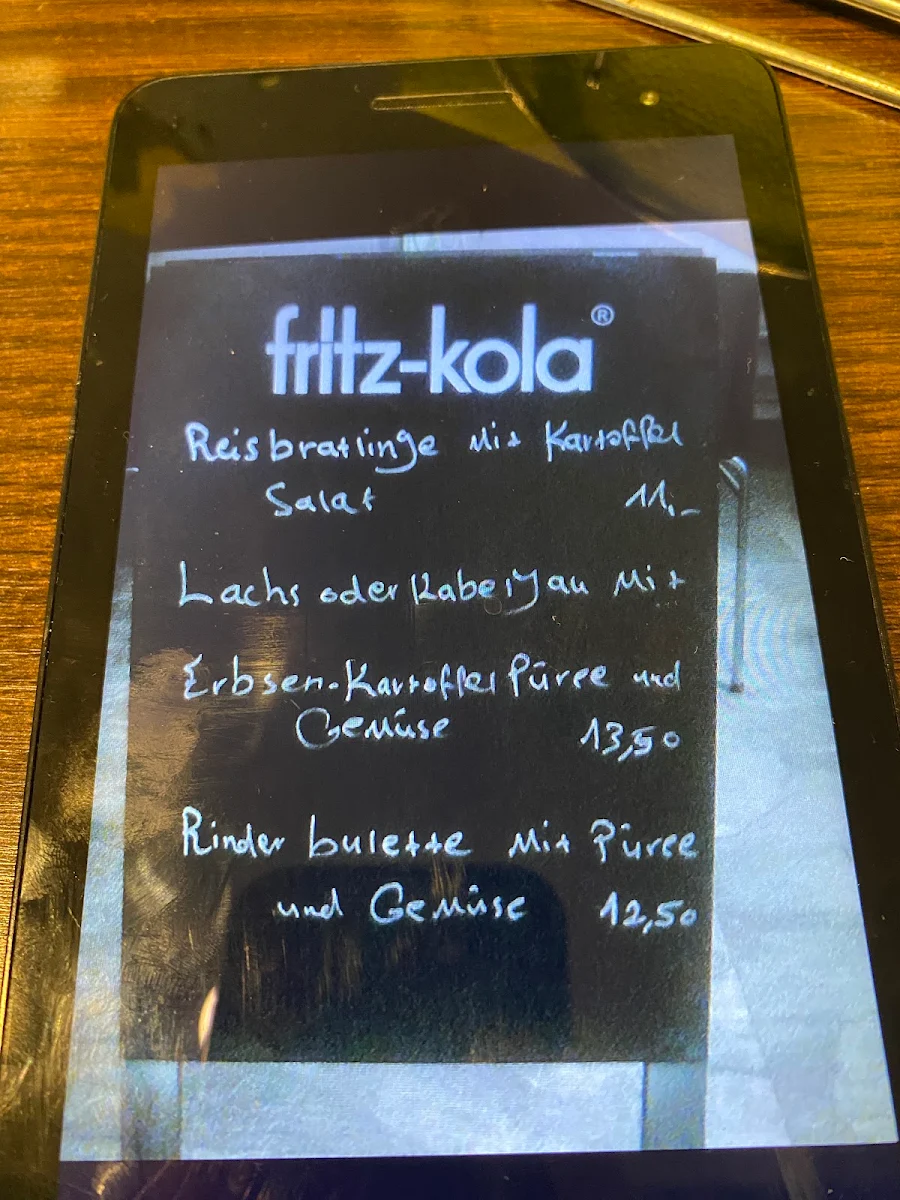 fritz-kola®
Reisbratlinge Mit Kartoffel
Salat 11,-
Lachs oder Kabeljau Mit
Erbsen-Kartoffel Püree und
Gemüse 13,50
Rinder bulette Mit Püree
und Gemüse 12,50